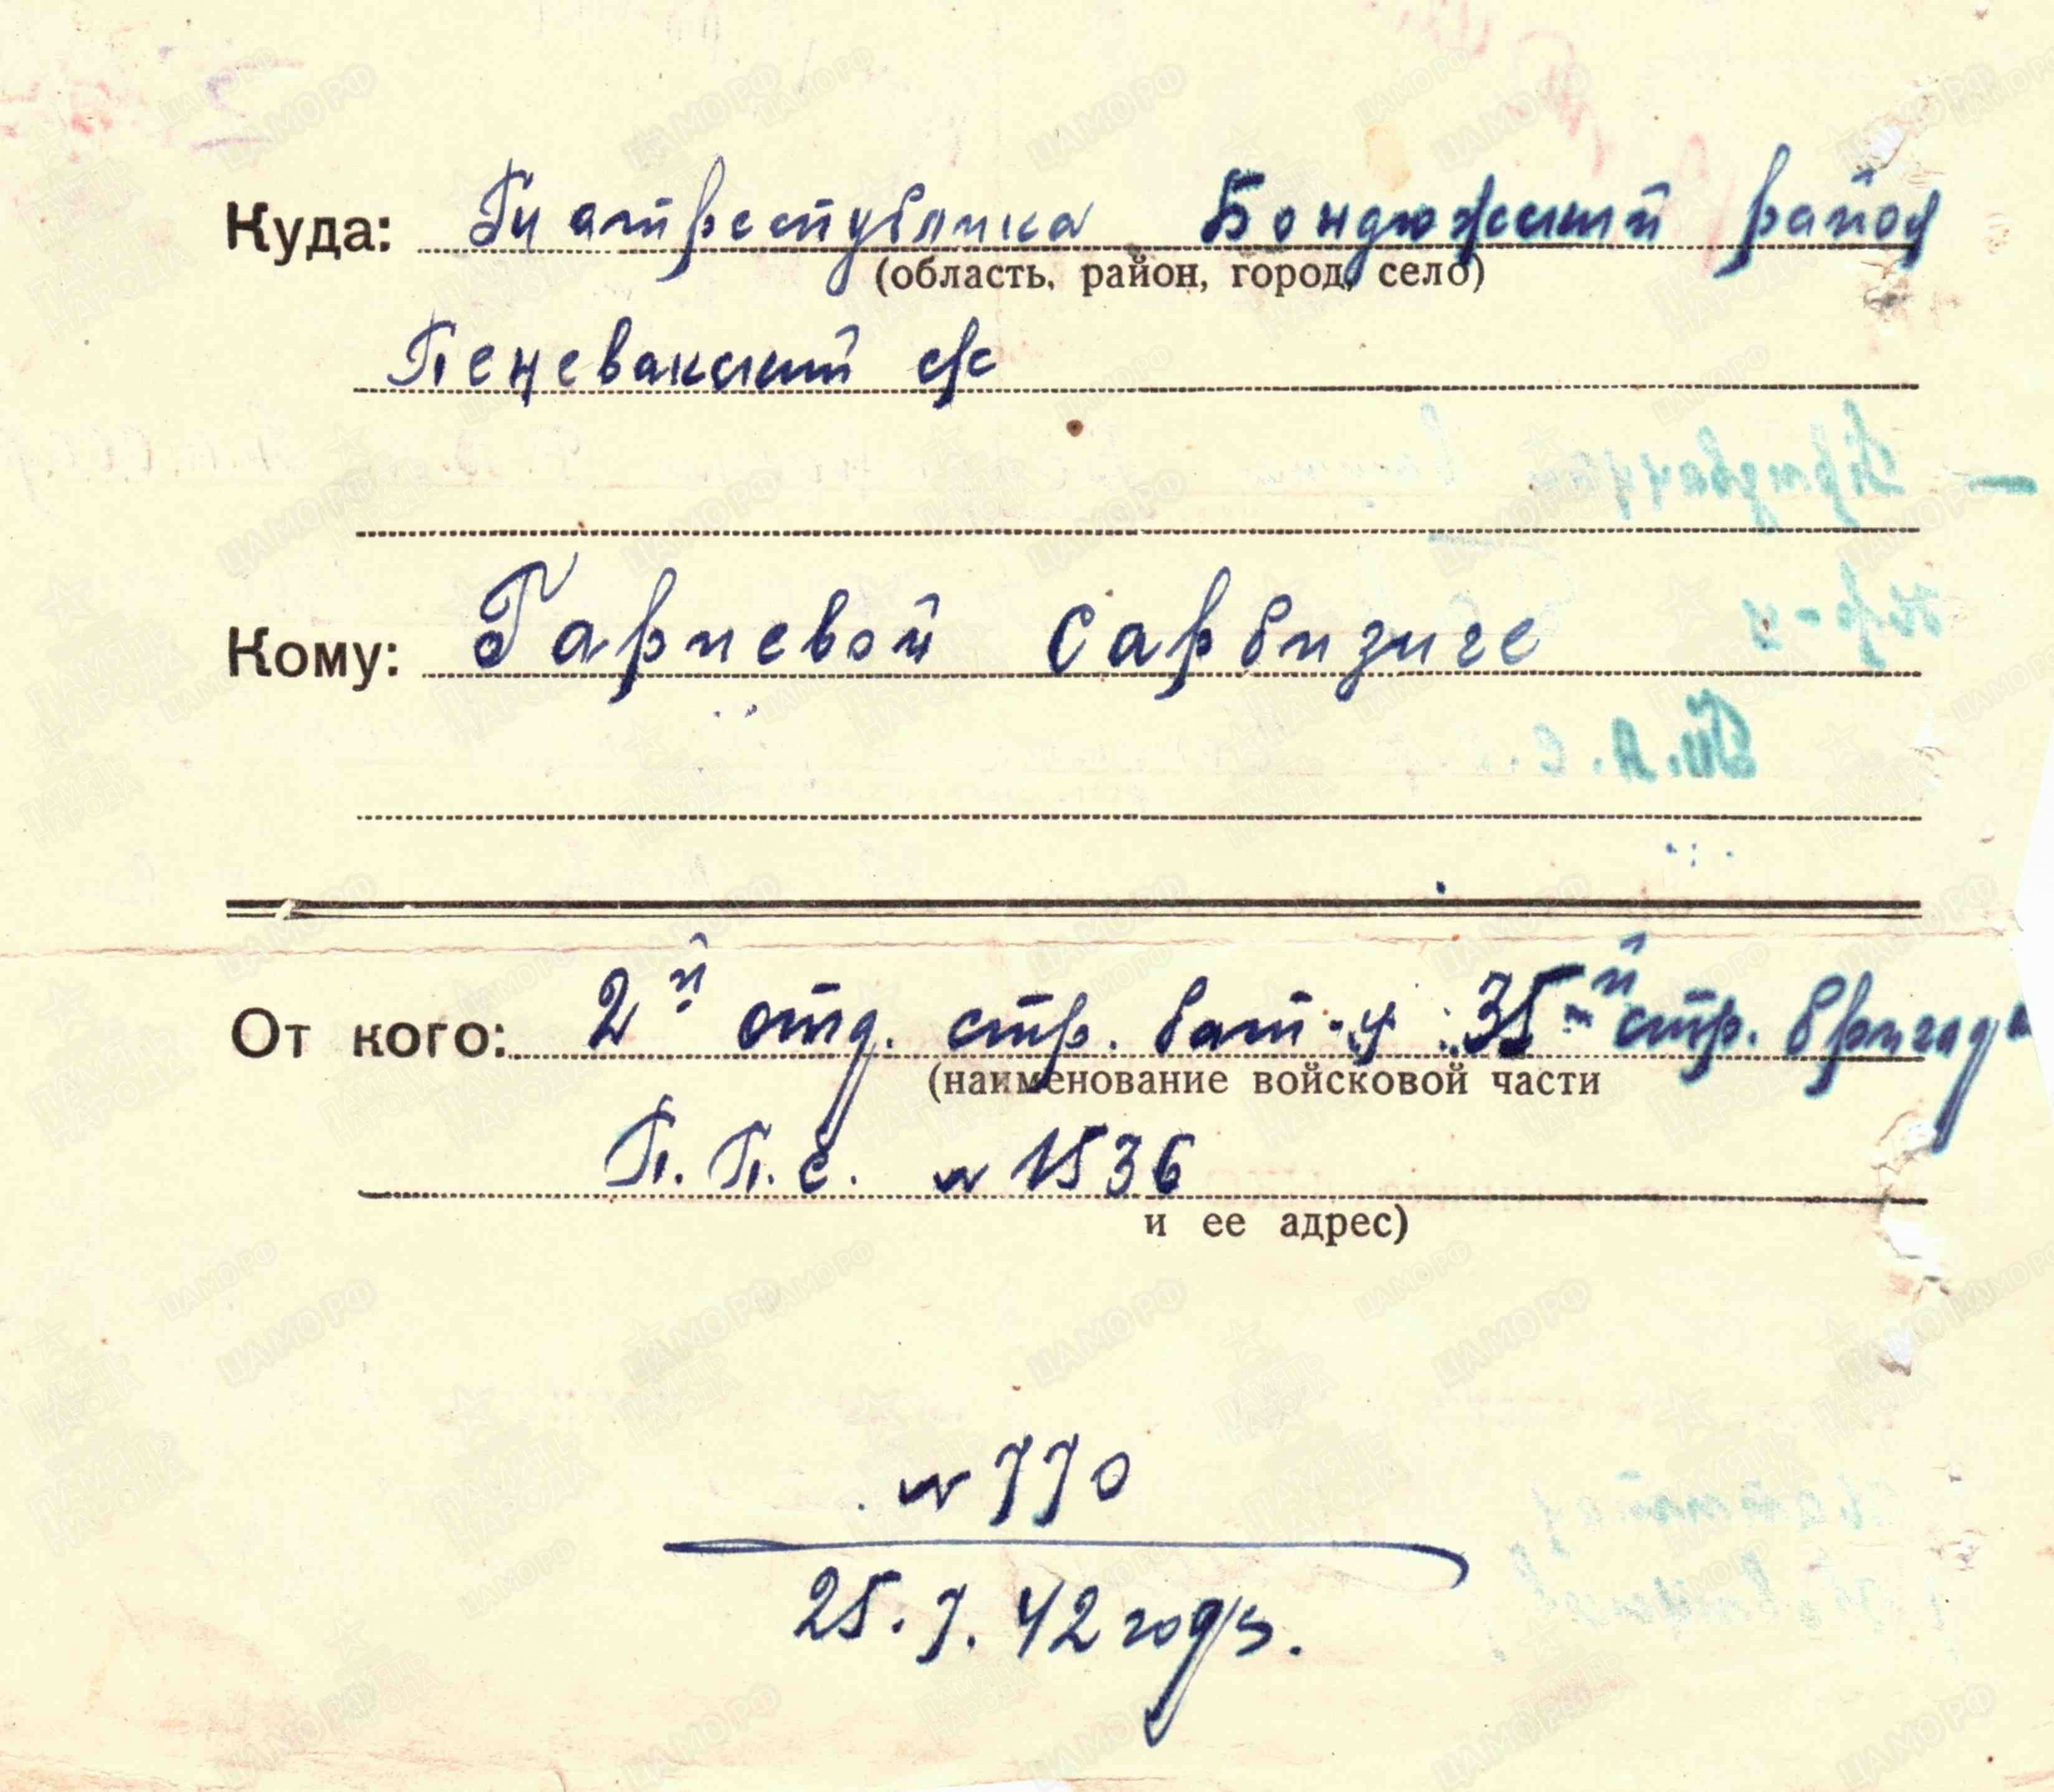 Куда: Татреспублика Бондюжский район
(область, район, город, село)
Пеневакский с/с
Кому: Гариевой Сарбизиге
От кого: 2й отд. стр. бат-н 35-й стр. бригады
(наименование войсковой части
П.П.С. № 1536
и ее адрес)
№ 770
25.7.42 года.